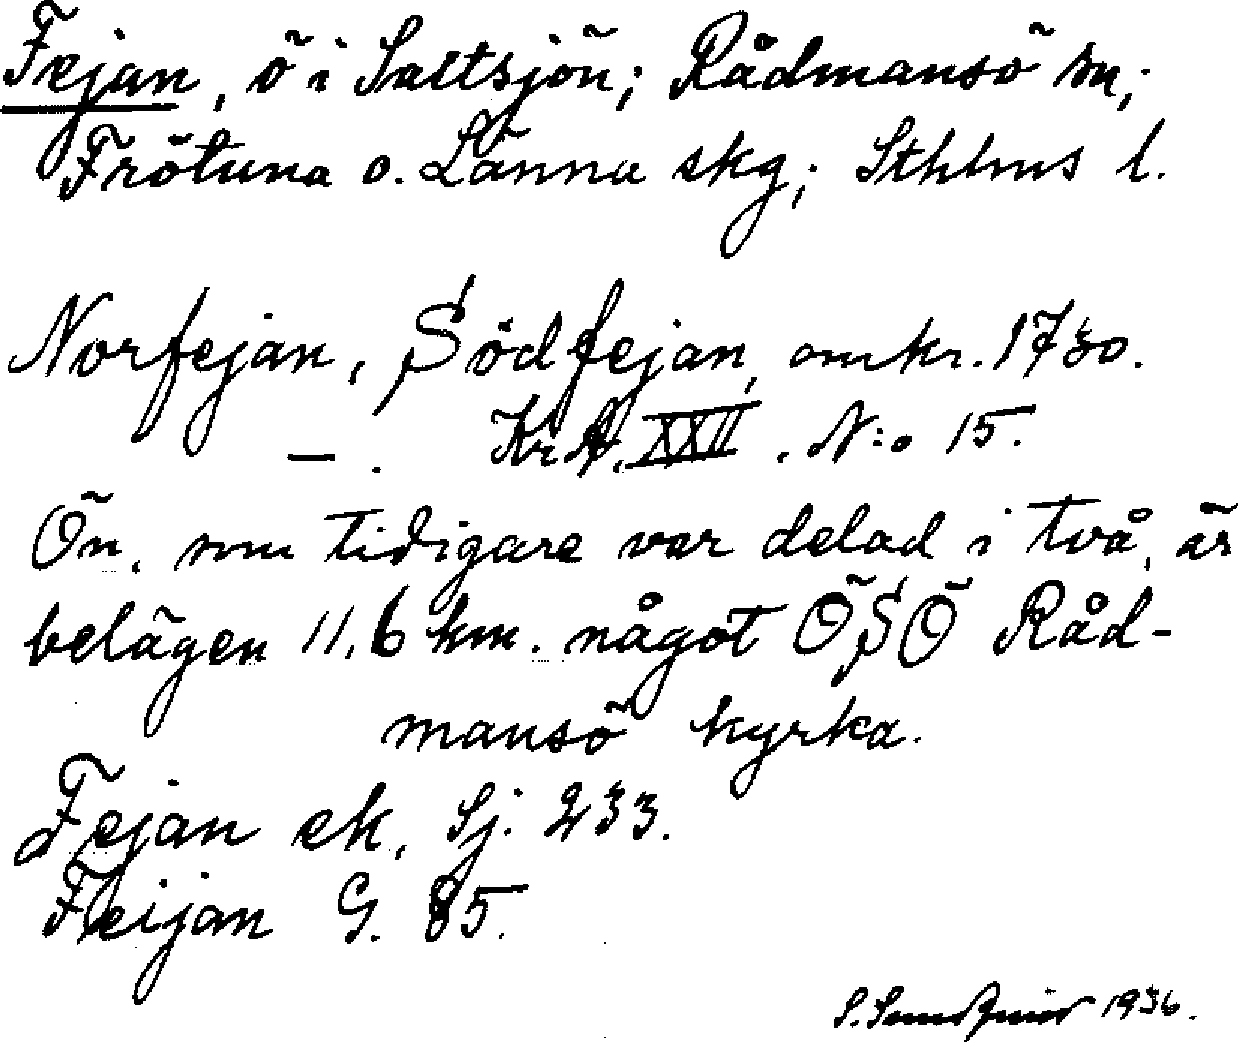 Fejan, ö i Saltsjön; Rådmansö sn;
Frötuna o. Länna skg; Sthlms l.
Norfejan, Södfejan, omkr. 1730.
— . KrA. XXII. N:o 15.
Ön, som tidigare var delad i två, är
belägen 11,6 km. något ÖSÖ Råd-
mansö kyrka.
Fejan ek, Sj. 233.
Feijan G. 85.
S. 1936.